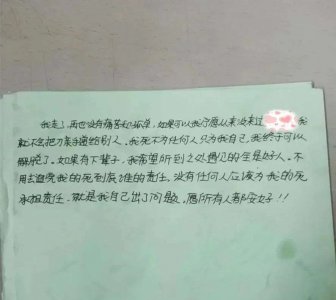 我走了，再也没有痛苦和坏单，如果可以我宁愿从来没来过 我
就不会把刀亲手递给别人。我死不为任何人只为我自己，我终于可以
解脱了。如果有下辈子，我希望所到之处遇见的全是好人。不
用去追究我的死到底谁的责任，没有任何人应该为我的死
承担责任，就是我自己出了问题，愿所有人都安好！！